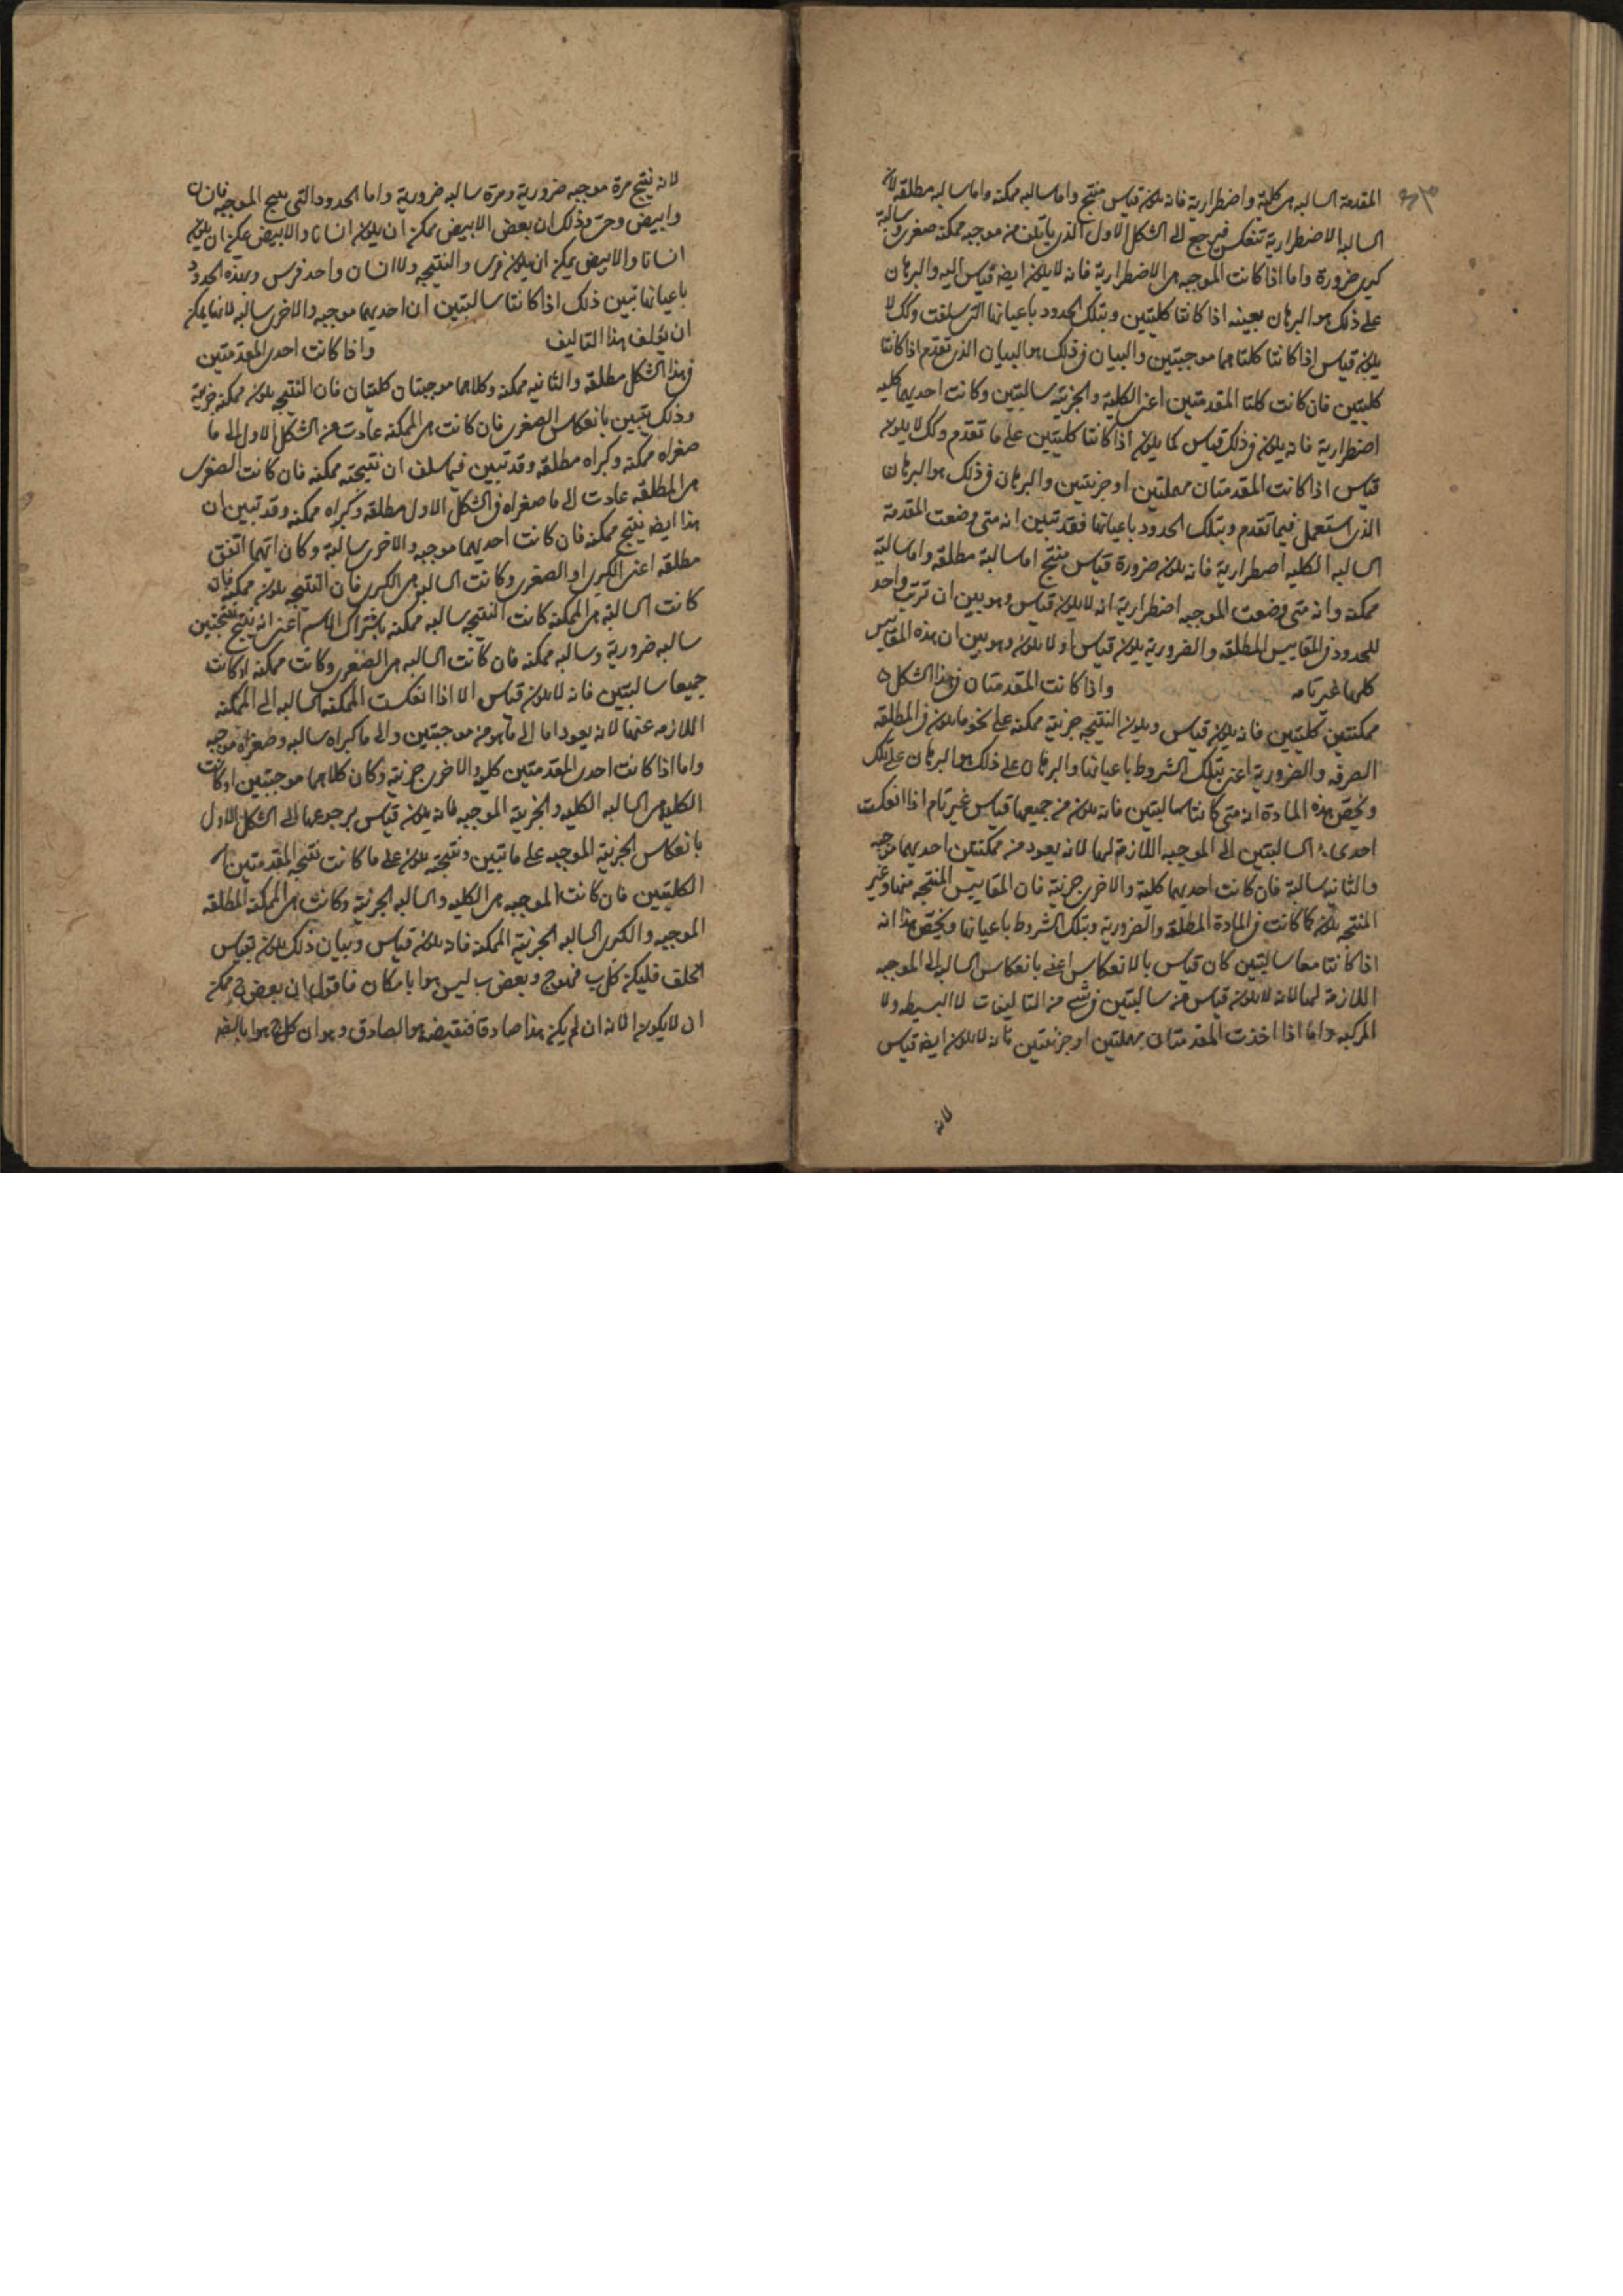 المقدمة السالبه هى كلية واضطرارية فانه يكون قياس منتج واما سالبه ممكنه واما سالبه مطلقه لان
السالبه الاضطرارية تنعكس فيرجع الى الشكل الاول الذى ياتلف من موجبه ممكنه صغرى وسالبة
كبرى ضرورة واما اذا كانت الموجبه هى الاضطرارية فانه لا يكون ايضا قياس اليه والبرهان
على ذلك هو البرهان بعينه اذا كانتا كليتين وبتلك الحدود باعيانها التى سلفت وكك لا
يكون قياس اذا كانتا كلتاهما موجبتين والبيان فى ذلك هو البيان الذى تقدم اذا كانتا
كليتين فان كانت كلتا المقدمتين اعنى الكلية والجزئية سالبتين وكانت احديهما كليه
اضطرارية فانه يكون فى ذلك قياس كما يكون اذا كانتا كليتين على ما تقدم وكك لا يكون
قياس اذا كانت المقدمتان مهملتين او جزئيتين والبرهان فى ذلك هو البرهان
الذى استعمل فيما تقدم وبتلك الحدود باعيانها فقد تبين انه متى وضعت المقدمة
السالبه الكليه اضطرارية فانه يكون ضرورة قياس منتج اما سالبة مطلقه واما سالبة
ممكنه وانه متى وضعت الموجبه اضطرارية انه لا يكون قياس وهو بين ان ترتيب واحد
للحدود فى المقاييس المطلقه والضرورية يكون قياس او لا يكون وهو بين ان هذه المقاييس
كلها غير تامه واذا كانت المقدمتان فى هذا الشكل
ممكنتين كليتين فانه يكون قياس ويكون النتيجه جزئية ممكنه على نحو ما يكون فى المطلقه
الصرفه والضرورية اعنى بتلك الشروط باعيانها والبرهان على ذلك هو البرهان على تلك
ويخص هذه المادة انه متى كانتا سالبتين فانه يكون من جميعها قياس غير تام اذا انعكست
احدى السالبتين الى الموجبه اللازمة لها لانه يعود من ممكنتين احديهما موجبه
والثانيه سالبة فان كانت احديهما كلية والاخرى جزئية فان المقاييس المنتجه منها وغير
المنتجه يكون كما كانت فى المادة المطلقه والضرورية وبتلك الشروط باعيانها ويخص هذا انه
اذا كانتا معا سالبتين كان قياس بالانعكاس اعنى بانعكاس السالبه الى الموجبه
اللازمة لها لانه لا يكون قياس من سالبتين فى شئ من التاليفات لا البسيطه ولا
المركبه واما اذا اخذت المقدمتان مهملتين او جزئيتين فانه لا يكون ايضا قياس
لانه
لانه ينتج مرة موجبه ضرورية ومرة سالبه ضرورية واما الحدود التى ينتج الموجبه فان
وابيض وحى وذلك ان بعض الابيض ممكن ان يكون انسانا والابيض يمكن ان يكون
انسانا والابيض يمكن ان يكون فرسا والنتيجه ولا انسان واحد فرس وبهذه الحدود
باعيانها تبين ذلك اذا كانتا سالبتين ان احديهما موجبه والاخرى سالبه لانها يمكن
ان يؤلف هذا التاليف واذا كانت احدى المقدمتين
فى هذا الشكل مطلقه والثانيه ممكنه وكلاهما موجبتان كليتان فان النتيجه يكون ممكنه جزئية
وذلك يتبين بانعكاس الصغرى فان كانت هى الممكنه عادت من الشكل الاول الى ما
صغراه ممكنه وكبراه مطلقه وقد تبين فيما سلف ان نتيجته ممكنه فان كانت الصغرى
هى المطلقه عادت الى ما صغراه فى الشكل الاول مطلقه وكبراه ممكنه وقد تبين ان
هذا ايضا ينتج ممكنه فان كانت احديهما موجبه والاخرى سالبة وكان ايتهما اتفق
مطلقه اعنى الكبرى او الصغرى وكانت السالبه هى الكبرى فان النتيجه يكون ممكنه فان
كانت السالبه هى الممكنه كانت النتيجه سالبه ممكنه باشتراك الاسم اعنى انه ينتج نتيجتين
سالبه ضرورية وسالبه ممكنه فان كانت السالبه هى الصغرى وكانت ممكنه او كانت
جميعا سالبتين فانه لا يكون قياس الا اذا انعكست الممكنه السالبه الى الممكنه
اللازمه عنها لانه يعود اما الى ما هو من موجبتين والى ما كبراه سالبه وصغراه موجبه
واما اذا كانت احدى المقدمتين كليه والاخرى جزئية وكان كلاهما موجبتين او كانت
الكليه هى السالبه الكليه والجزئية الموجبه فانه يكون قياس برجوعها الى الشكل الاول
بانعكاس الجزئية الموجبه على ما تبين ونتيجته يكون على ما كانت نتيجه المقدمتين
الكليتين فان كانت الموجبه هى الكليه والسالبه الجزئية وكانت هى الممكنه المطلقه
الموجبه والكبرى السالبه الجزئية الممكنه فانه يكون قياس وبيان ذلك يكون بقياس
الخلف فليكن كل ب فهو ج وبعض ب ليس هو ا بامكان فاقول ان بعض ج ممكن
ان لا يكون ا لانه ان لم يكن هذا صادقا فنقيضه هو الصادق وهو ان كل ج هو ا بالضر